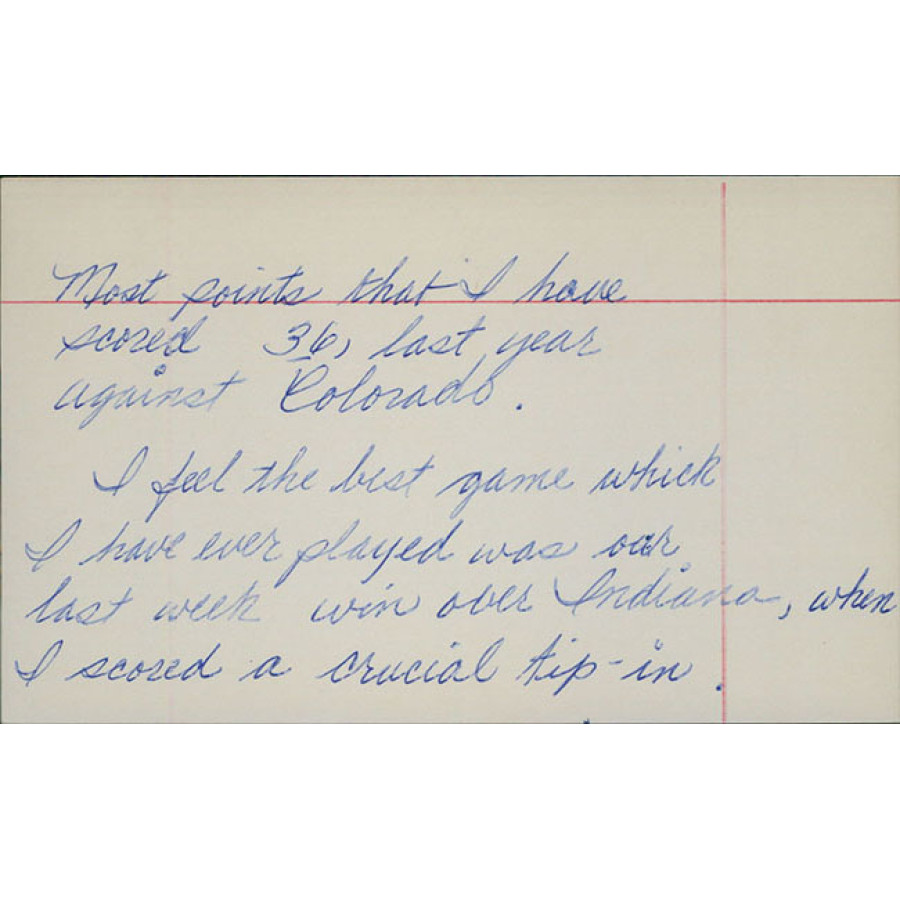 Most points that I have
scored 36, last year
against Colorado.
I feel the best game which
I have ever played was our
last week win over Indiana, when
I scored a crucial tip-in.